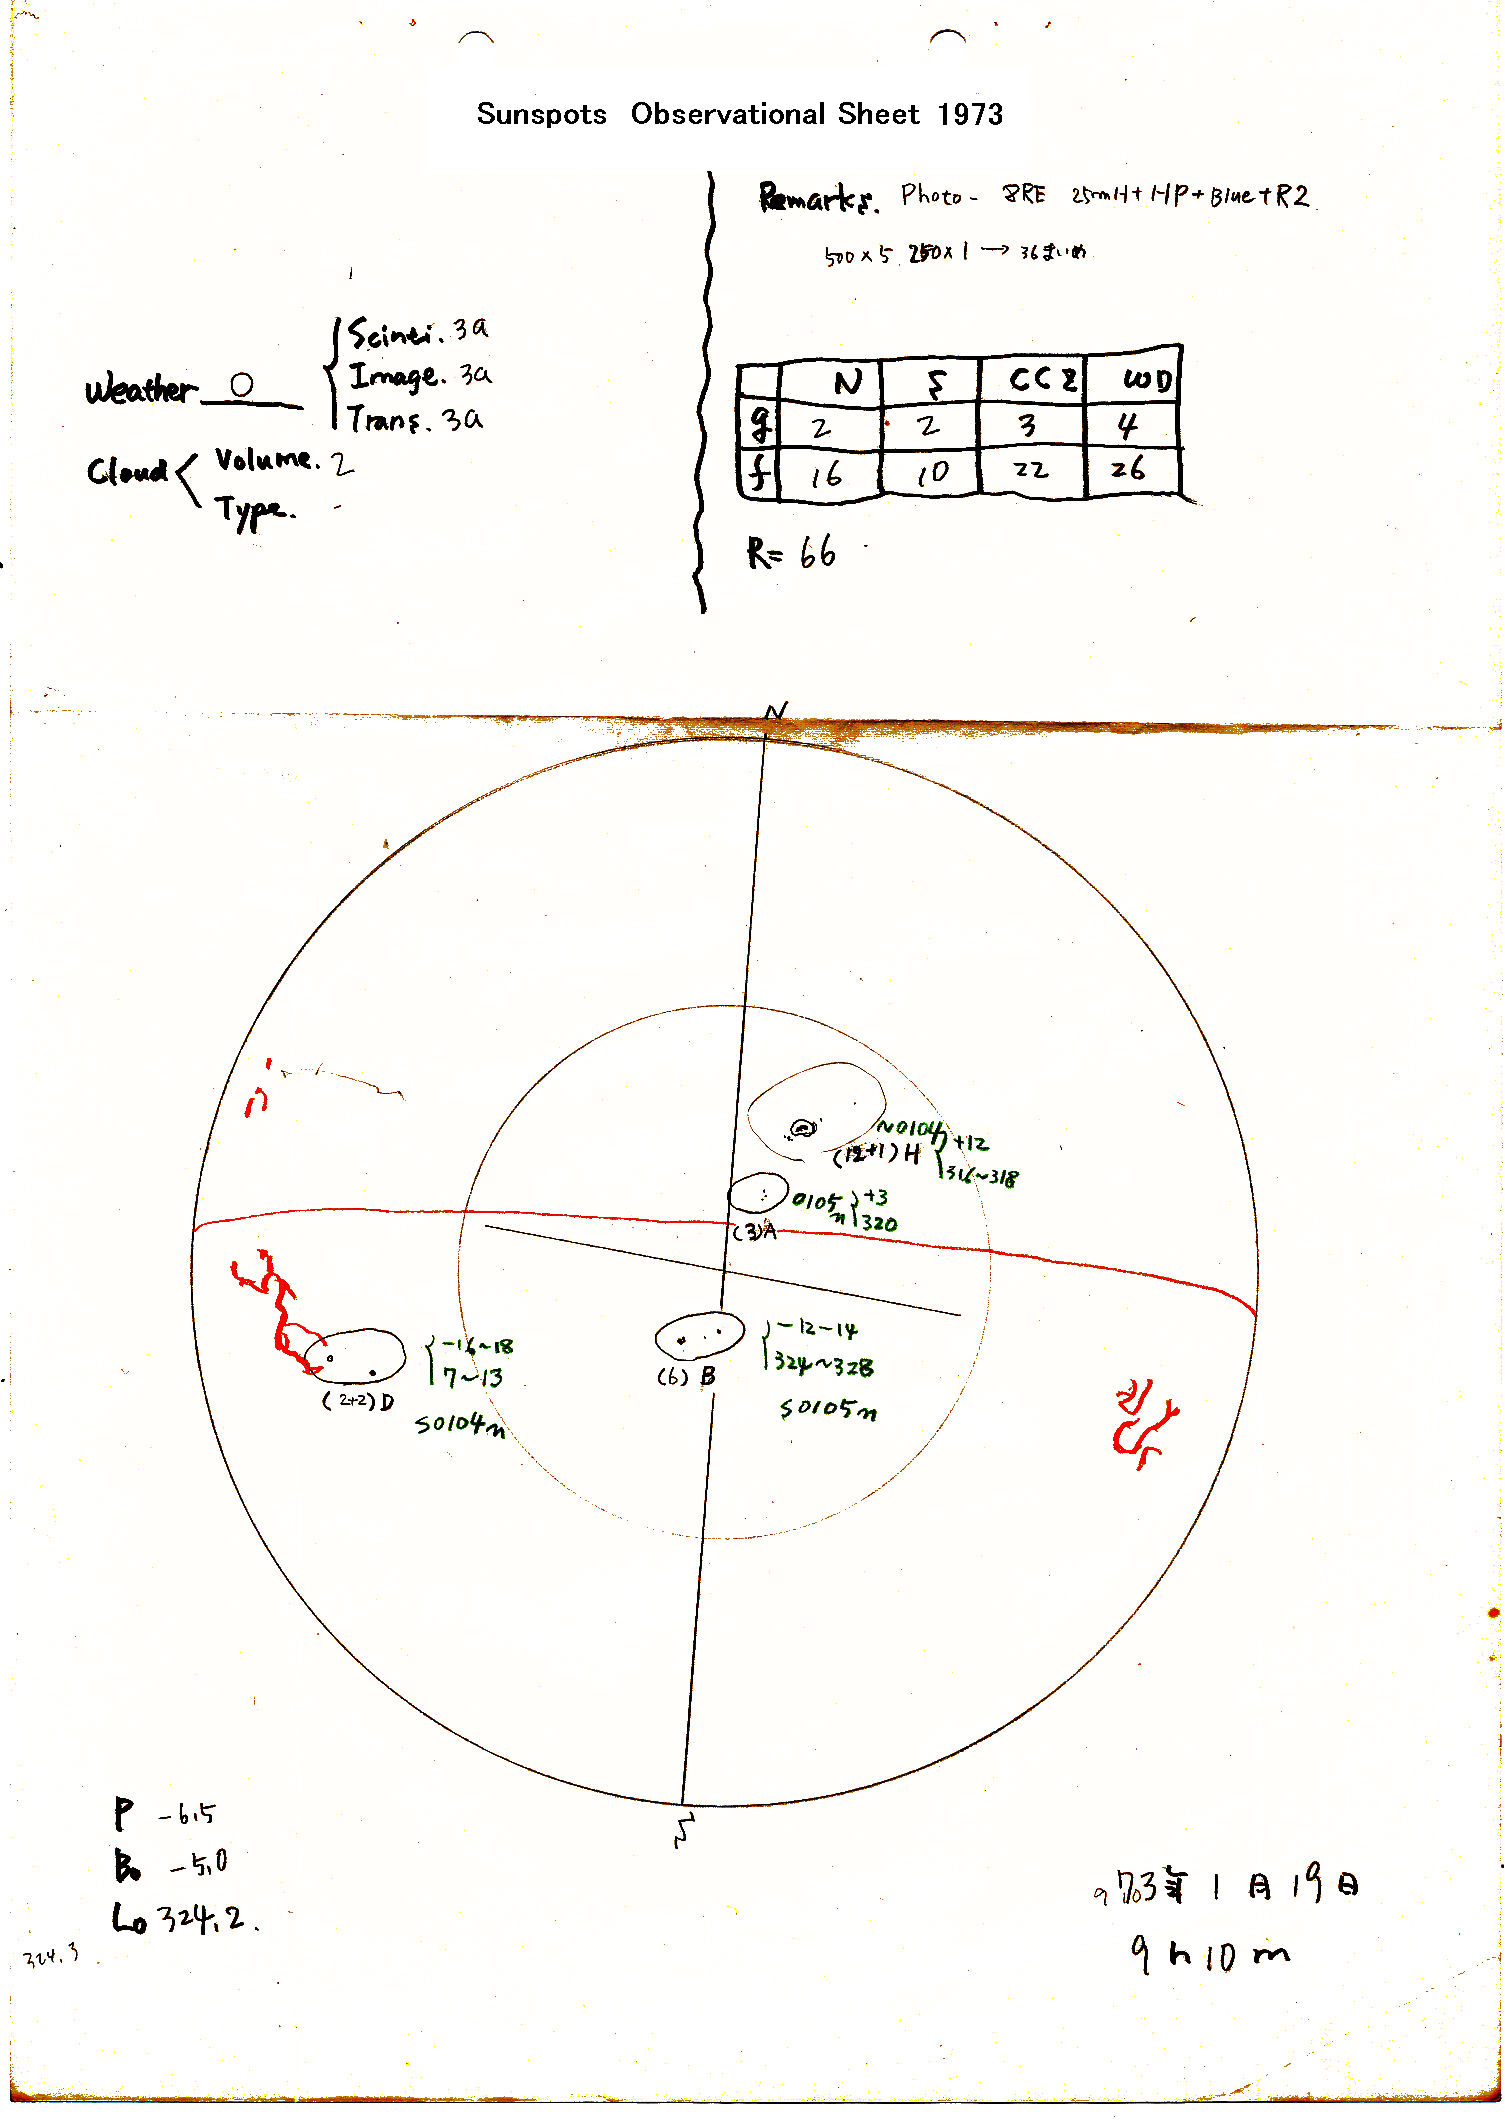 Sunspots Observational Sheet 1973
Remarks. Photo - 8RE 25mmH+HP+Blue+R2
500×5 250×1 → 36まいめ
Weather O
Scinti. 3a
Image. 3a
Trans. 3a
Cloud
Volume. 2
Type. -
N S CCZ WD
g 2 2 3 4
f 16 10 22 26
R= 66
N
N0104
(12+1) H
+12
316~318
0105n
+3
320
(3)A
-12-14
324~328
(6) B
S0105n
-16~18
7~13
(2+2) D
S0104n
S
P -6.5
B₀ -5.0
L₀ 324.2.
324.3
1973年 1月19日
9h10m